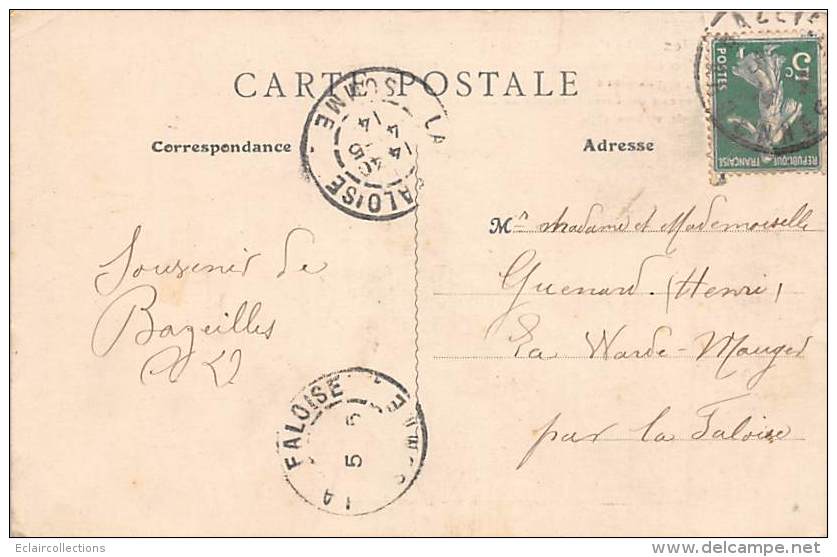 CARTE POSTALE
Correspondance
Adresse
5c
POSTES
REPUBLIQUE FRANÇAISE
LA FALOISE
SOMME
14 40
5
4
14
Souvenir de
Bazeilles
Mr Madame et Mademoiselle
Guenard (Henri)
La Warde-Mauger
par la Faloise
LA FALOISE
5 5
Eclaircollections
www.delcampe.net